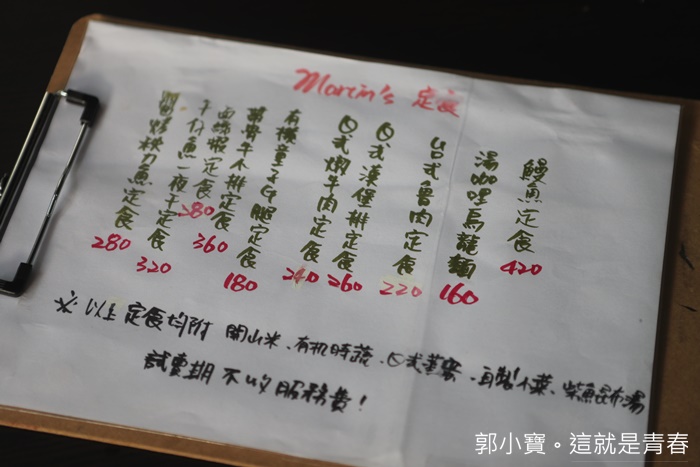 Marcin's 定食
鰻魚定食 420
湯咖哩烏龍麵 160
台式魯肉定食 220
日式漢堡排定食 260
日式燉牛肉定食 240
有機童子雞腿定食 180
帶骨牛小排定食 360
定食 280
竹筴魚一夜干定食 320
秋刀魚定食 280
※以上定食均附 開山米、有机時蔬、日式蒸蛋、自製小菜、柴魚昆布湯
試賣期不收服務費!
郭小寶。這就是青春